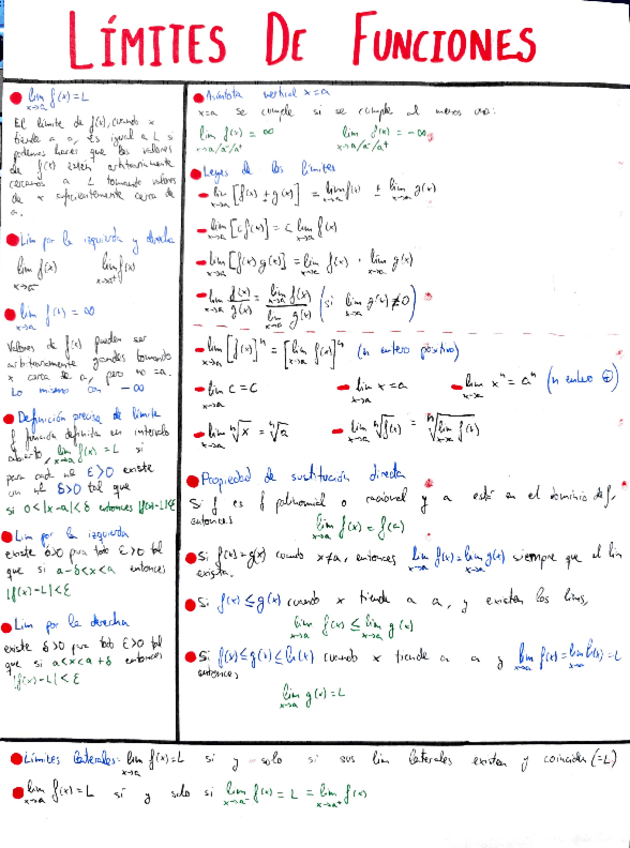 LÍMITES DE FUNCIONES
lim x→a f(x) = L
El límite de f(x), cuando x
tiende a a, es igual a L si
podemos hacer que los valores
de f(x) estén arbitrariamente
cercanos a L tomando valores
de x suficientemente cerca de
a.
Lim por la izquierda y derecha
lim x→a⁻ f(x) lim x→a⁺ f(x)
lim x→a f(x) = ∞
Valores de f(x) pueden ser
arbitrariamente grandes tomando
x cerca de a, pero no =a.
Lo mismo con −∞
Definición precisa de límite
f función definida en intervalo
abierto, lim x→a f(x) = L si
para cada nº ε>0 existe
un nº δ>0 tal que
si 0<|x−a|<δ entonces |f(x)−L|<ε
Lim por la izquierda
existe δ>0 para todo ε>0 tal
que si a−δ<x<a entonces
|f(x)−L|<ε
Lim por la derecha
existe δ>0 para todo ε>0 tal
que si a<x<a+δ entonces
|f(x)−L|<ε
Asíntota vertical x=a
x=a se cumple si se cumple al menos una:
lim x→a/a⁻/a⁺ f(x) = ∞ lim x→a/a⁻/a⁺ f(x) = −∞
Leyes de los límites
lim x→a [f(x) ± g(x)] = lim x→a f(x) ± lim x→a g(x)
lim x→a [c f(x)] = c lim x→a f(x)
lim x→a [f(x) g(x)] = lim x→a f(x) · lim x→a g(x)
lim x→a f(x)/g(x) = lim x→a f(x) / lim x→a g(x) (si lim x→a g(x) ≠ 0)
lim x→a [f(x)]ⁿ = [lim x→a f(x)]ⁿ (n entero positivo)
lim x→a c = c lim x→a x = a lim x→a xⁿ = aⁿ (n entero ⊕)
lim x→a ⁿ√x = ⁿ√a lim x→a ⁿ√f(x) = ⁿ√lim x→a f(x)
Propiedad de sustitución directa
Si f es f polinomial o racional y a está en el dominio de f,
entonces lim x→a f(x) = f(a)
Si f(x)=g(x) cuando x≠a, entonces lim x→a f(x) = lim x→a g(x) siempre que el lim
exista.
Si f(x)≤g(x) cuando x tiende a a, y existen los lims,
lim x→a f(x) ≤ lim x→a g(x)
Si f(x)≤g(x)≤h(x) cuando x tiende a a y lim x→a f(x) = lim x→a h(x) = L
entonces
lim x→a g(x) = L
Límites laterales: lim x→a f(x)=L si y solo si sus lim laterales existen y coinciden (=L)
lim x→a f(x) = L si y solo si lim x→a⁻ f(x) = L = lim x→a⁺ f(x)